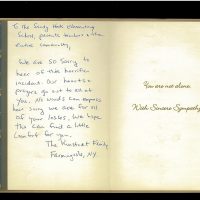 To The Sandy Hook Elementary
School, parents, teachers & the
entire community,
We are so sorry to
hear of this horrific
incident. Our hearts &
prayers go out to all of
you. No words can express
how sorry we are for all
of your losses. We hope
this can find a little
comfort for you.
The Family
Farmingville, NY
You are not alone.
With Sincere Sympathy